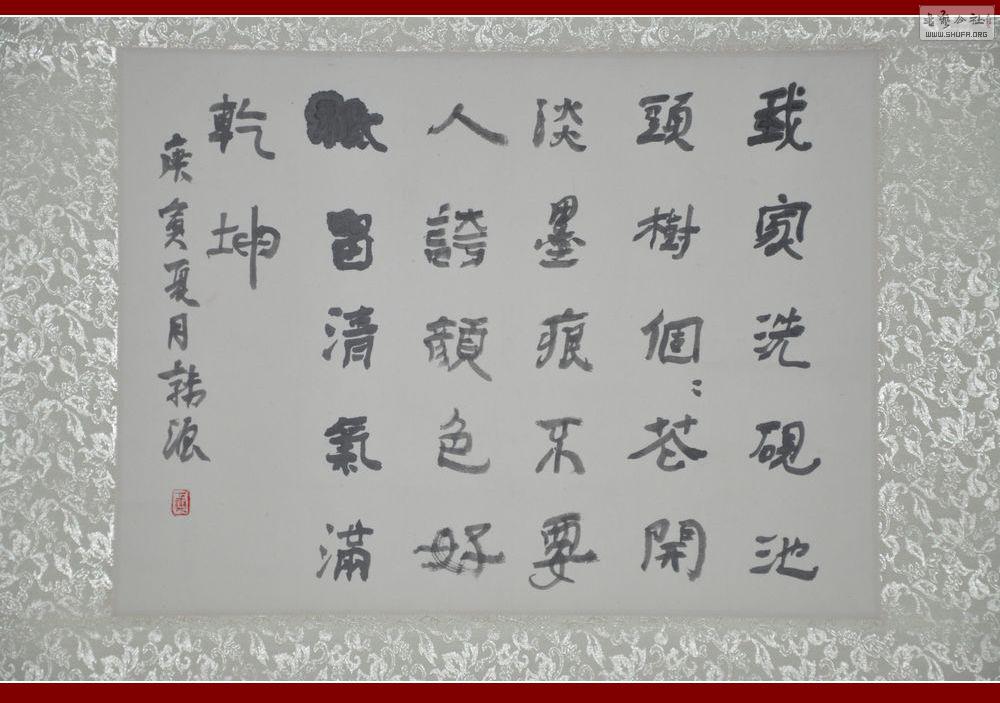 我家洗硯池
頭樹個〻花開
淡墨痕不要
人誇顏色好
留清氣滿
乾坤
庚寅夏月源
書藝公社
WWW.SHUFA.ORG